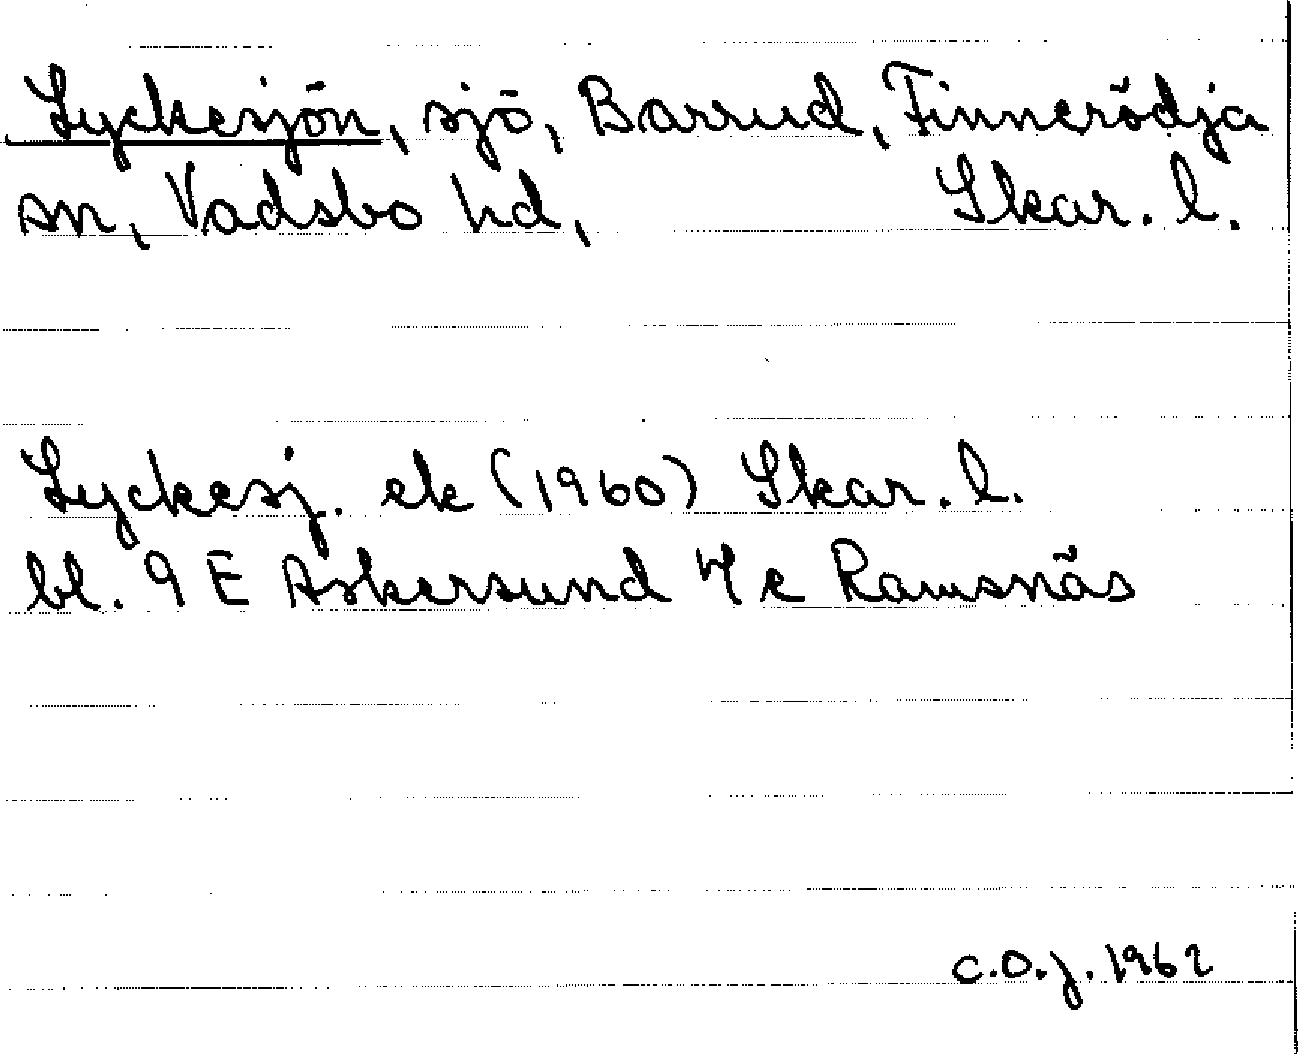 Lyckesjön, sjö, Barrud, Finnerödja
sn, Vadsbo hd, Skar. l.
Lyckesj. ek (1960) Skar. l.
bl. 9 E Askersund 4 c Ramsnäs
C.O.J. 1962